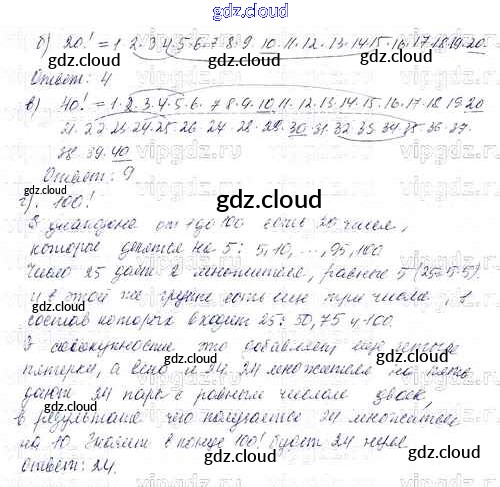 gdz.cloud
б) 20! = 1·2·3·4·5·6·7·8·9·10·11·12·13·14·15·16·17·18·19·20
Ответ: 4
в) 40! = 1·2·3·4·5·6·7·8·9·10·11·12·13·14·15·16·17·18·19·20
21·22·23·24·25·26·27·28·29·30·31·32·33·34·35·36·37·
38·39·40
Ответ: 9
г) 100!
диапазона от 1 до 100 есть 20 чисел,
которые делятся на 5: 5, 10, ..., 95, 100
Число 25 дает 2 множителя, равные 5 (25=5·5)
и в этой же группе есть еще три числа, в
состав которых входит 25: 50, 75 и 100.
В совокупности это добавляет еще четыре
пятерки, а всего и 24. 24 множителя на пять
дают 24 пары с равным числом двоек,
в результате чего получается 24 множителя
на 10. Значит в конце 100! будет 24 нуля
Ответ: 24.
gdz.cloud